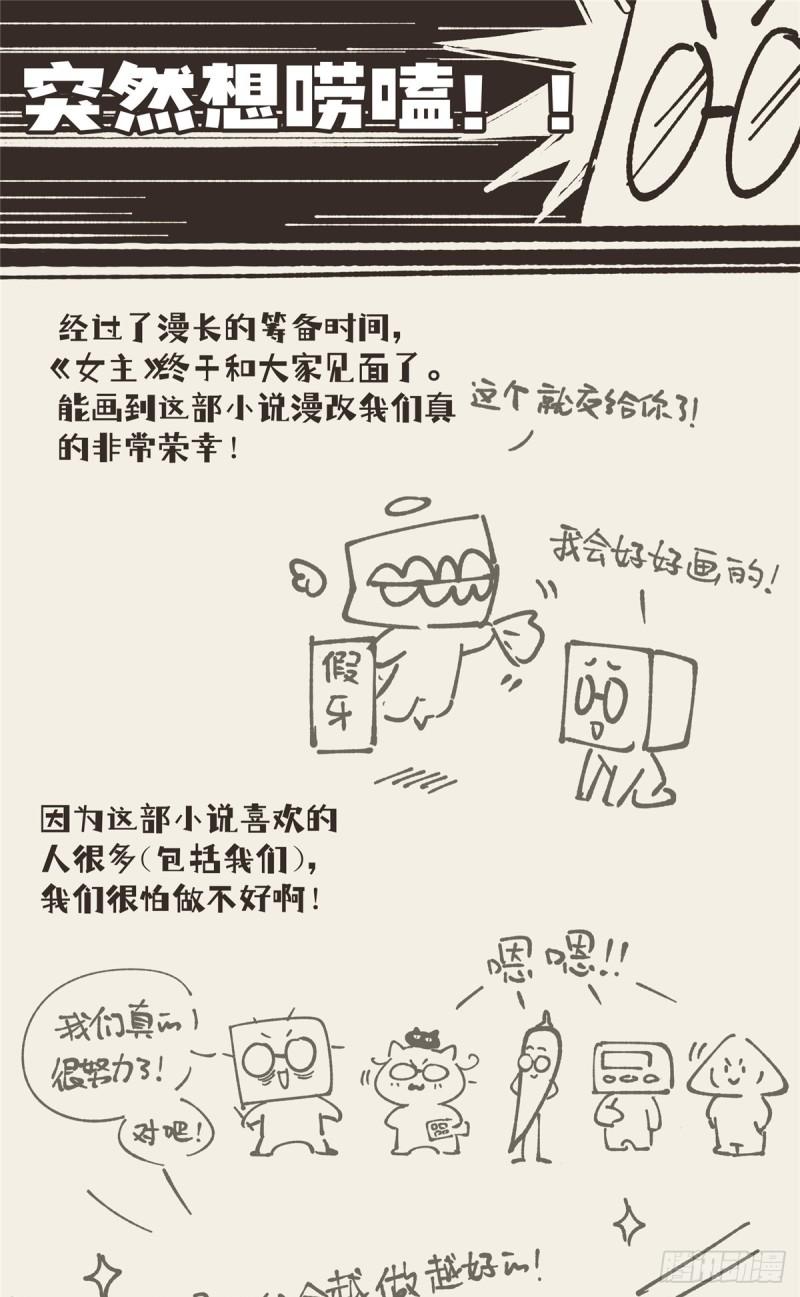 突然想唠嗑！！
经过了漫长的筹备时间，
《女主》终于和大家见面了。
能画到这部小说漫改我们真
的非常荣幸！
这个就交给你了！
我会好好画的！
假
牙
因为这部小说喜欢的
人很多（包括我们），
我们很怕做不好啊！
嗯嗯！！
我们真的
很努力了！
对吧！
会越做越好的！
腾讯动漫